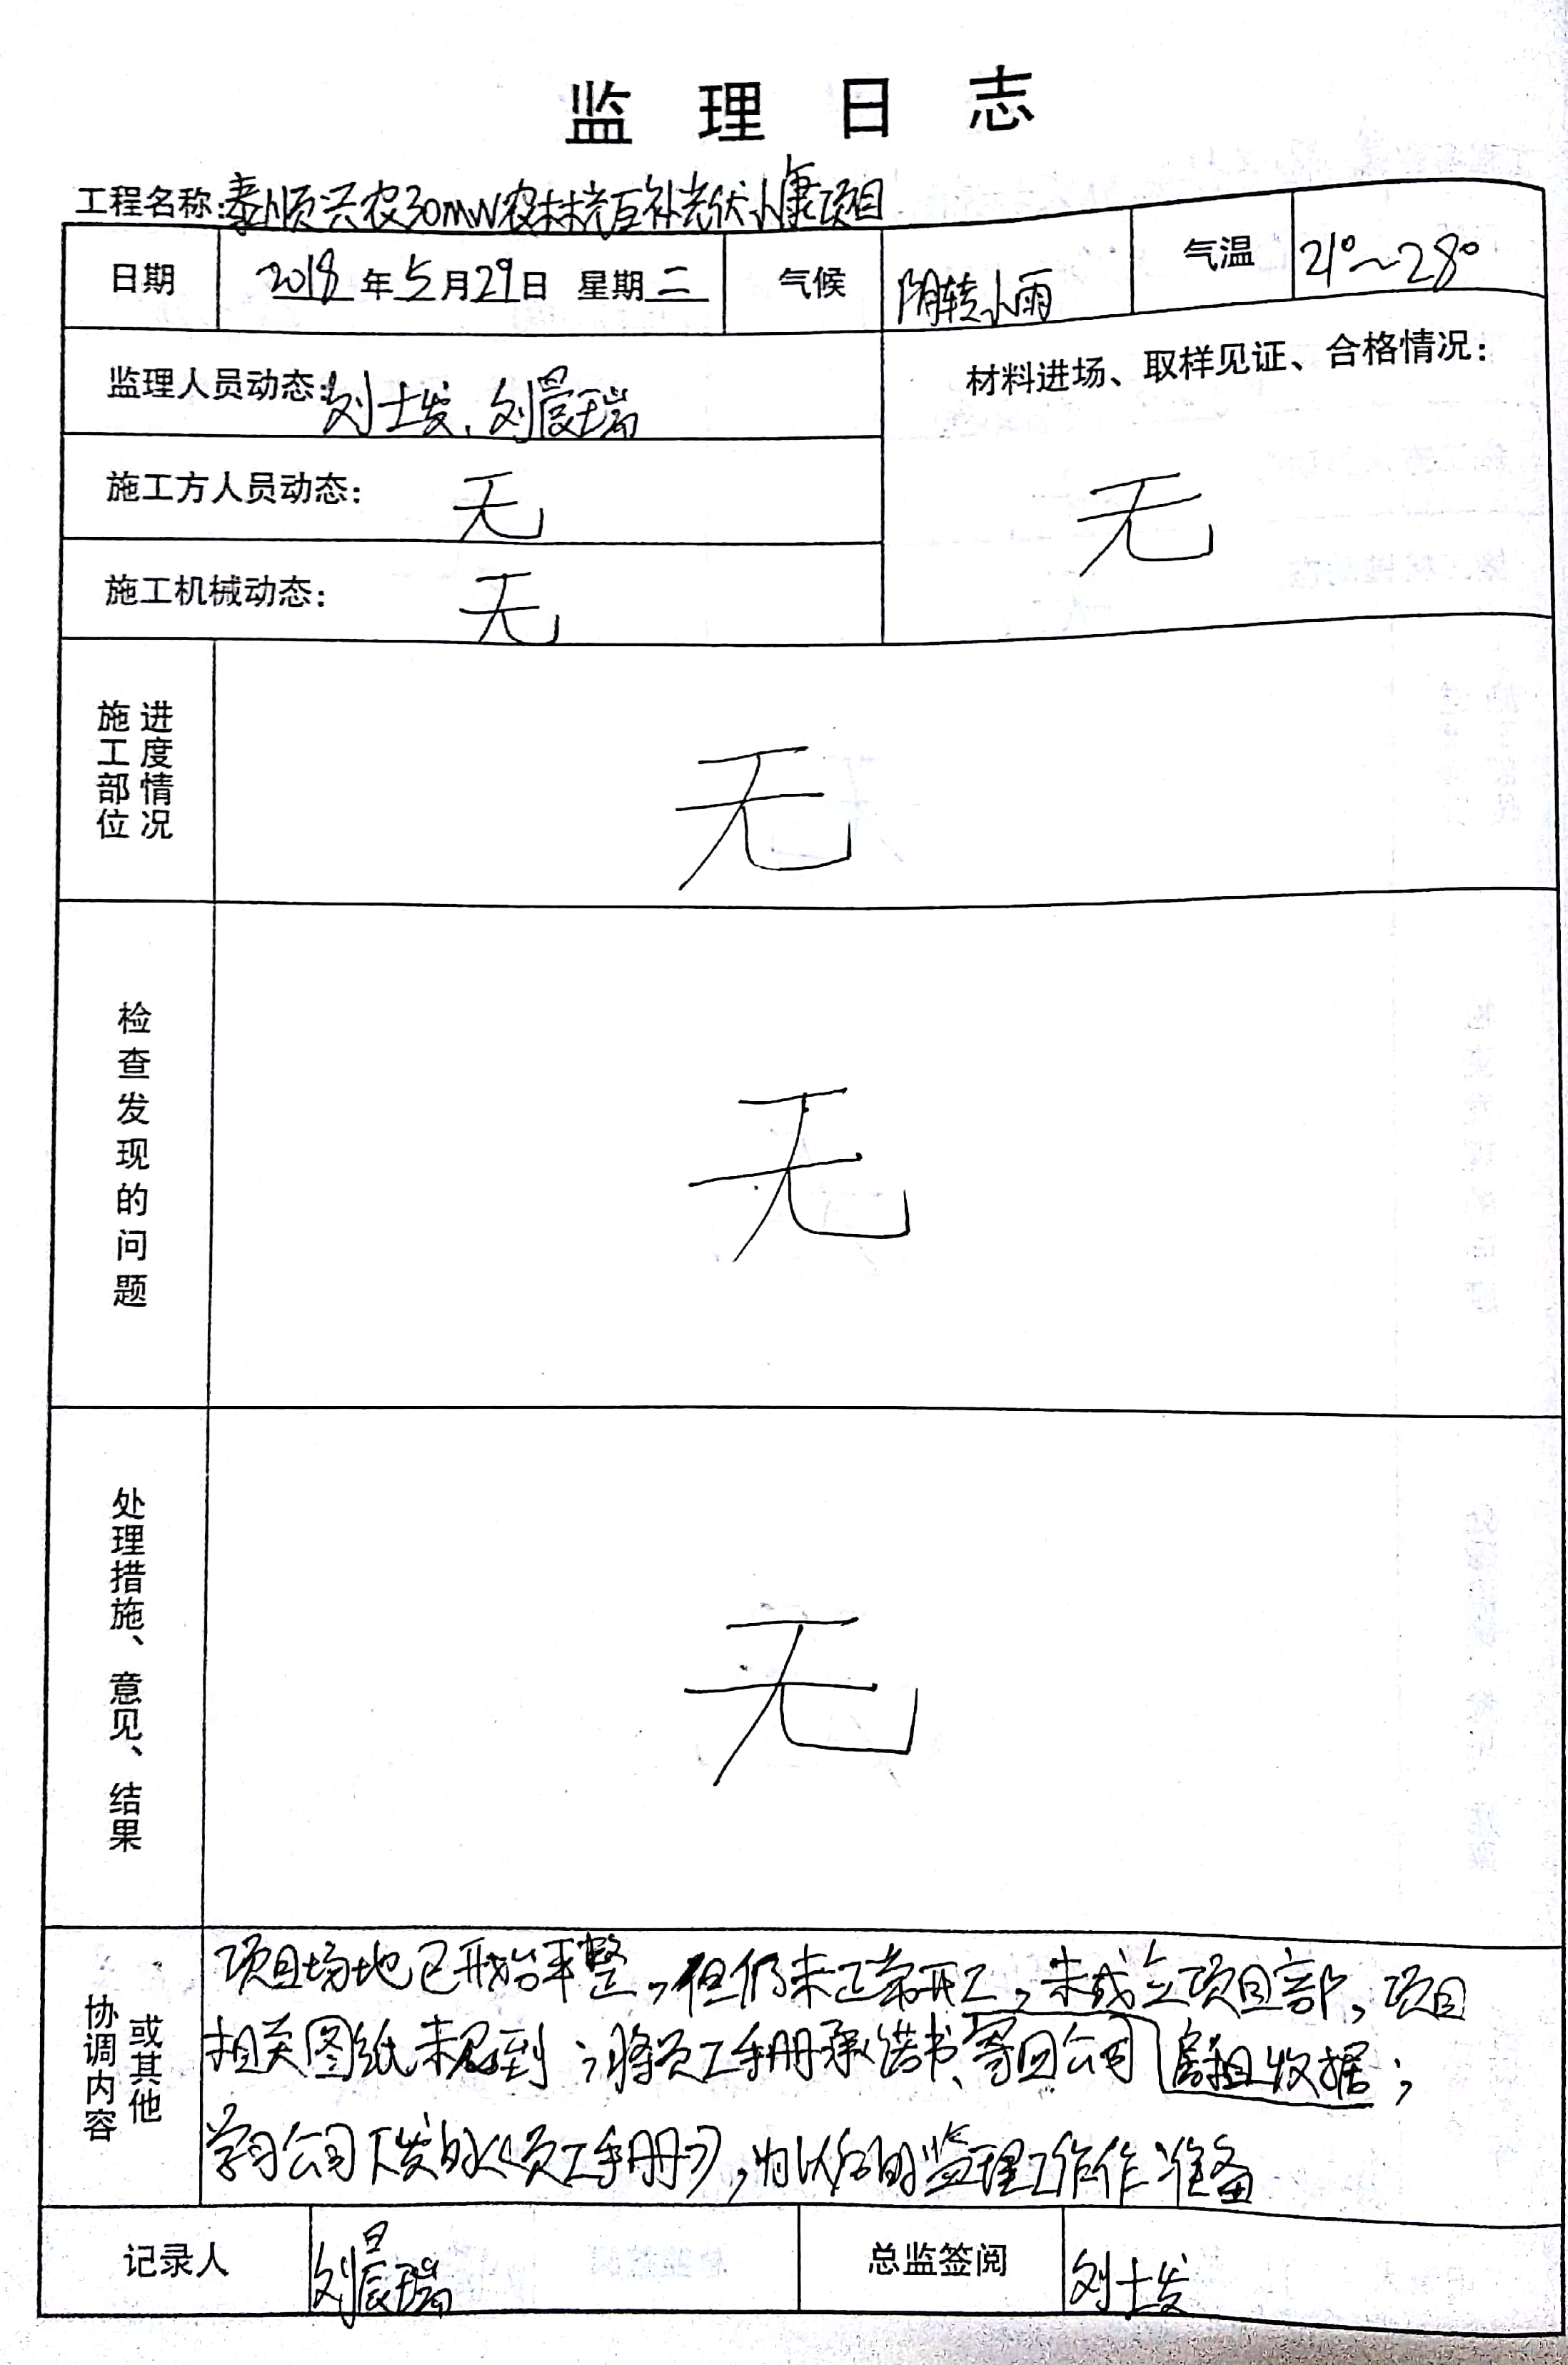 监理日志
工程名称:泰顺兴农30mW农林光互补光伏小康项目
日期 2018年5月29日 星期二 气候 阴转小雨 气温 21°~28°
监理人员动态:刘士发、刘晨瑞
材料进场、取样见证、合格情况:
无
施工方人员动态: 无
施工机械动态: 无
施工部位
进度情况
无
检查发现的问题
无
处理措施、意见、结果
无
协调内容
或其他
项目场地已开始平整,但仍未正常开工,未成立项目部,项目
相关图纸未看到;将员工手册承诺书、寄回公司 房租收据;
学习公司下发的《员工手册》,为以后的监理工作作准备
记录人 刘晨瑞 总监签阅 刘士发